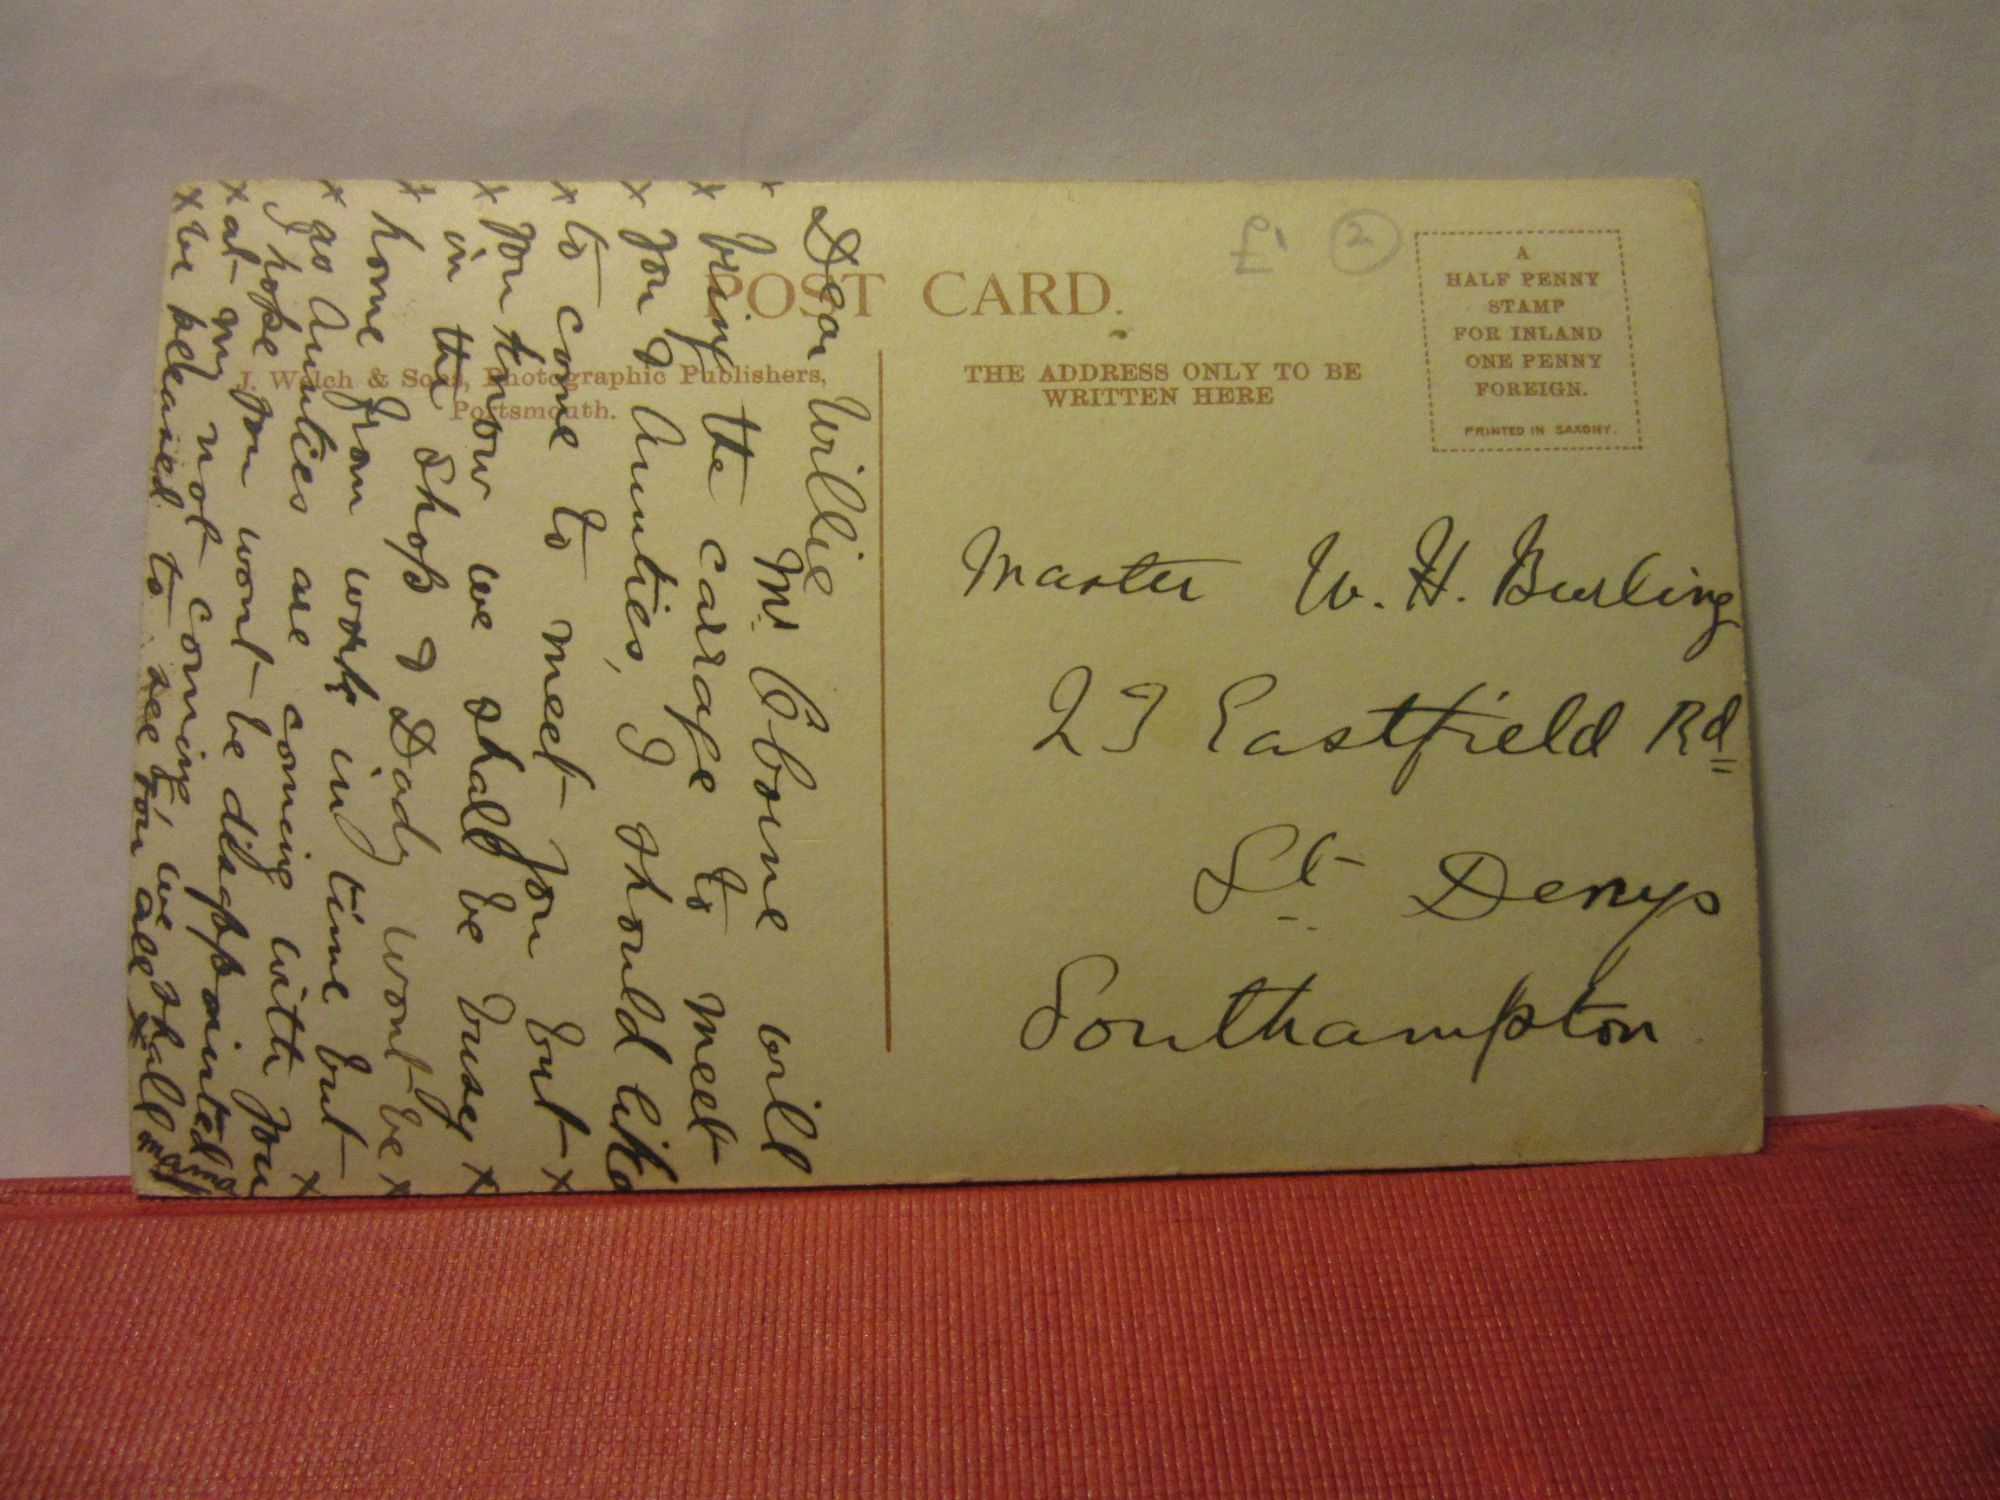 Dear Willie
Mr. Obourne will
bring the carrage to meet
you & Aunties, I should like
to come to meet you but
you know we shall be busey
in the shop & Dady wont be
home from work in time but
as Aunties are coming with you
I hope you wont be disappointed
at my not coming, we shall
be pleased to see you all
mama
x x x x x x x x x
x x x x x
POST CARD.
J. Welch & Sons, Photographic Publishers,
Portsmouth.
THE ADDRESS ONLY TO BE
WRITTEN HERE
£1 2
A
HALF PENNY
STAMP
FOR INLAND
ONE PENNY
FOREIGN.
PRINTED IN SAXONY.
Master W. H. Burling
27 Eastfield Rd
St Denys
Southampton